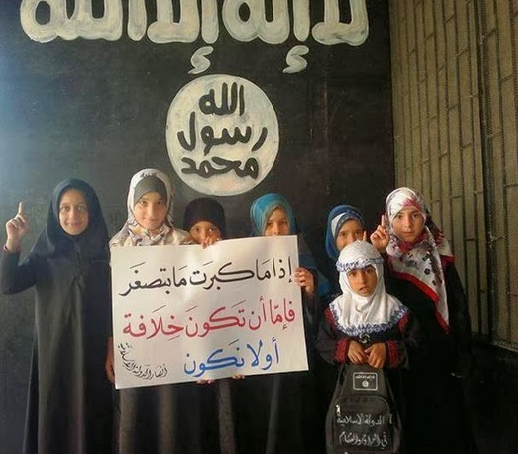 لا إله إلا الله
الله
رسول
محمد
إذا ما كبرت ما بتصغر
فإمّا أن تكون خلافة
أو لا نكون
الدولة الاسلامية
في العراق والشام